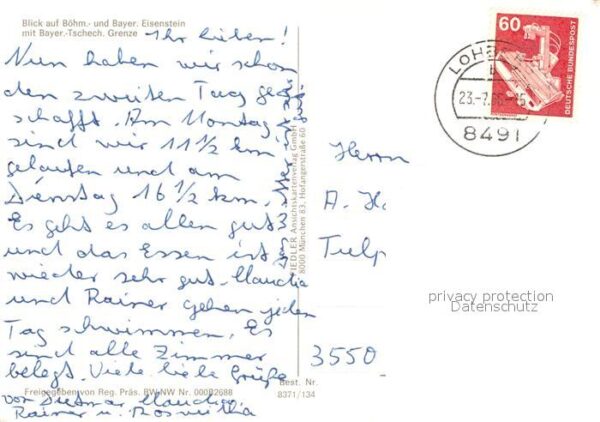 Blick auf Böhm.- und Bayer. Eisenstein
mit Bayer.-Tschech. Grenze
Ihr lieben!
Nun haben wir schon
den zweiten Tag ge
schafft. Am Montag
sind wir 11 1/2 km
gelaufen und am
Dienstag 16 1/2 km.
Es geht es allen gut
und das Essen ist
wieder sehr gut. Claudia
und Rainer gehen jeden
Tag schwimmen. Es
sind alle Zimmer
belegt. Viele liebe Grüße
von Dietmar, Claudia,
Rainer u. Roswitha
Freigegeben von Reg. Präs. BW-NW Nr. 000B2688
Best. Nr.
8371/134
FIEDLER Ansichtskartenverlag GmbH
8000 München 83, Hofangerstraße 60
60
DEUTSCHE BUNDESPOST
LOHB
b
23.-7.
8491
Herrn
A. H
Tulp
3550
privacy protection
Datenschutz